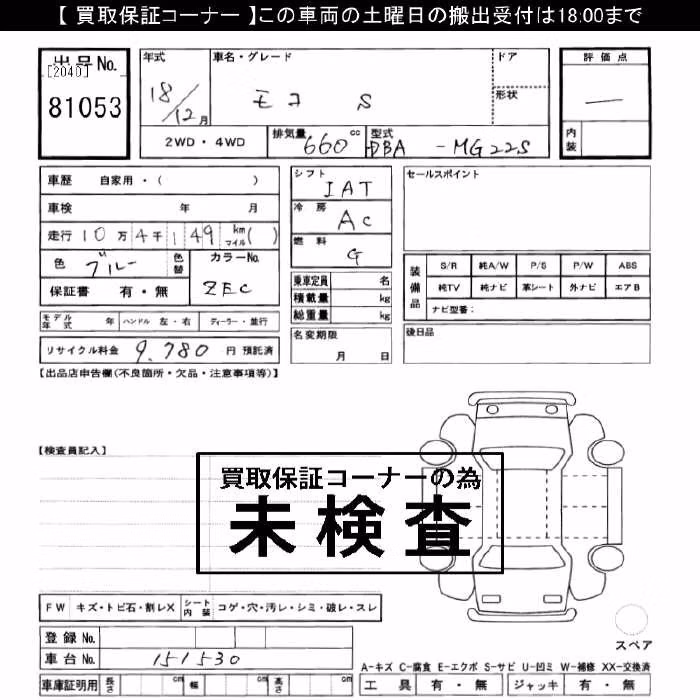 【 買取保証コーナー 】この車両の土曜日の搬出受付は18:00まで
出品No. 年式 車名・グレード ドア 評価点
[2040]
81053 18/12月 モコ S 形状 —
2WD・4WD 排気量 660 cc 型式 DBA - MG22S 内装
車歴 自家用・( ) シフト IAT セールスポイント
車検 年 月 冷房 AC
走行 10万4千149 km マイル( ) 燃料 G
色 ブルー 色替 カラーNo. ZEC
保証書 有・無
装備品 S/R 純A/W P/S P/W ABS
純TV 純ナビ 革シート 外ナビ エアB
ナビ型番:
乗車定員 名
積載量 kg
総重量 kg
モデル年式 年 ハンドル 左・右 ディーラー・並行
名変期限 月 日 後日品
リサイクル料金 9,780 円 預託済
【出品店申告欄(不良箇所・欠品・注意事項等)】
【検査員記入】
買取保証コーナーの為
未検査
FW キズ・トビ石・割レX シート内装 コゲ・穴・汚レ・シミ・破レ・スレ
登録No.
車台No. 151530
スペア
A-キズ C-腐食 E-エクボ S-サビ U-凹ミ W-補修 XX-交換済
車庫証明用 長さ cm 幅 cm 高さ cm 工具 有・無 ジャッキ 有・無